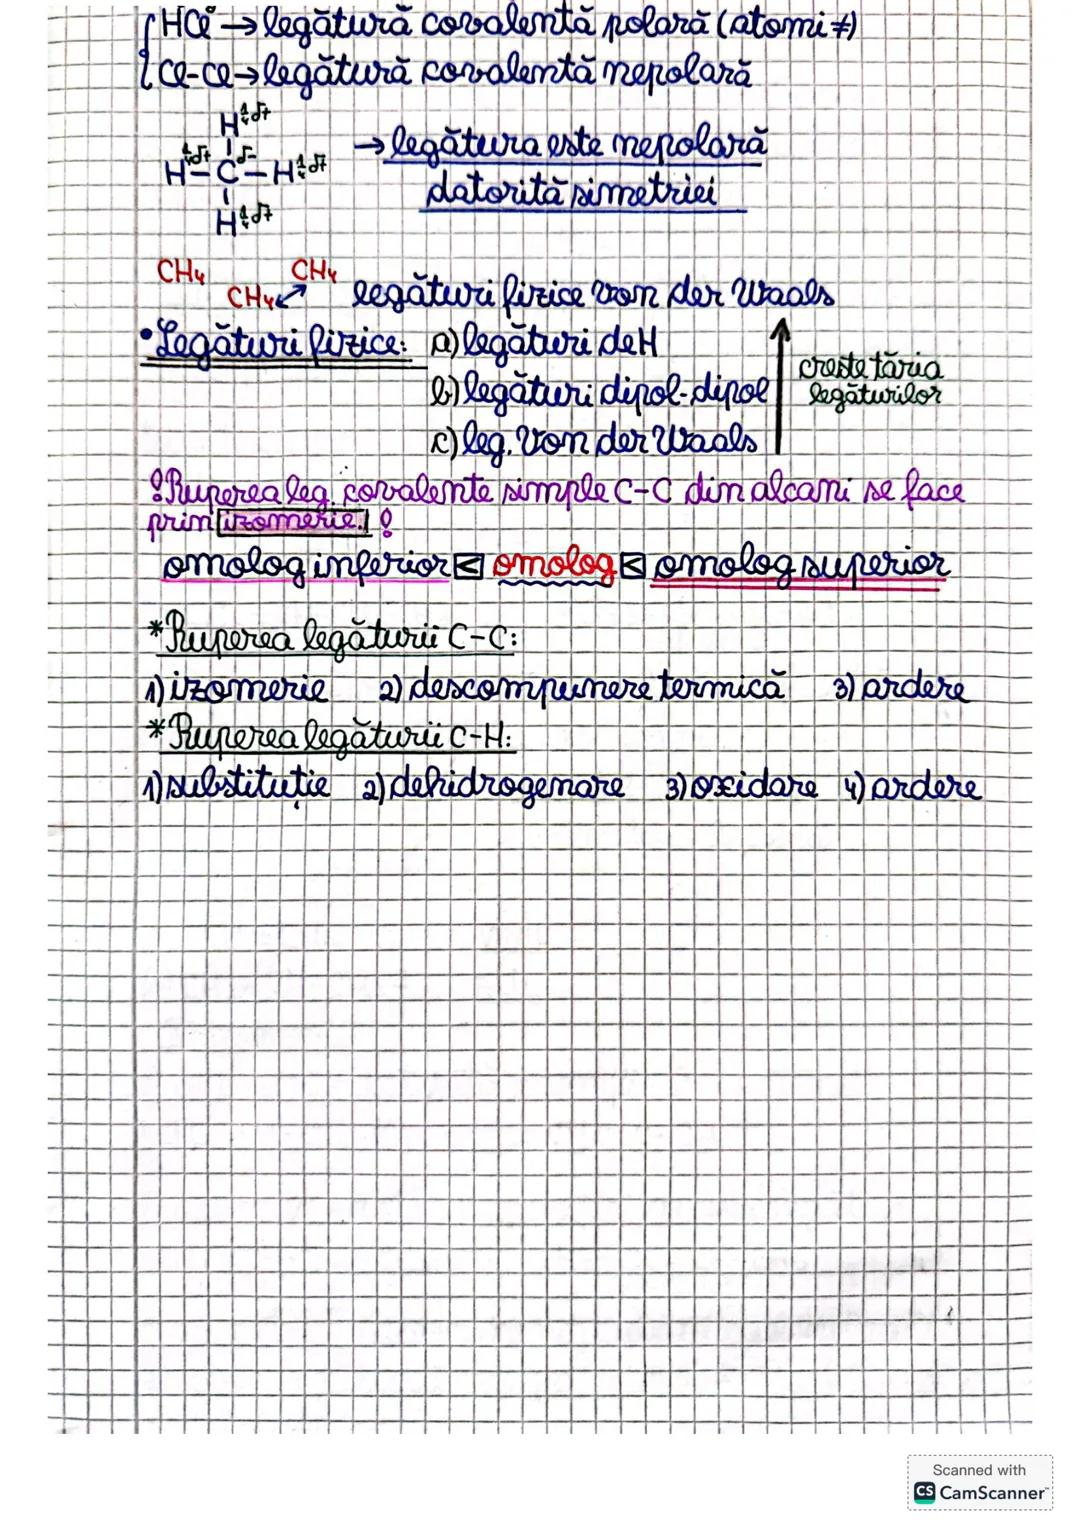 HCl → legătură covalentă polară (atomi ≠)
Cl-Cl → legătură covalentă nepolară
H 1/4 δ+
H 1/4 δ+ – C δ- – H 1/4 δ+ → legătura este nepolară
datorită simetriei
H 1/4 δ+
CH4 CH4
CH4 legături fizice Van der Waals
• Legături fizice: a) legături de H
b) legături dipol-dipol
c) leg. Van der Waals
crește tăria
legăturilor
! Ruperea leg. covalente simple C-C din alcani se face
prin izomerie. !
omolog inferior < omolog < omolog superior
* Ruperea legăturii C-C:
1) izomerie 2) descompunere termică 3) ardere
* Ruperea legăturii C-H:
1) substituție 2) dehidrogenare 3) oxidare 4) ardere
Scanned with
CS CamScanner